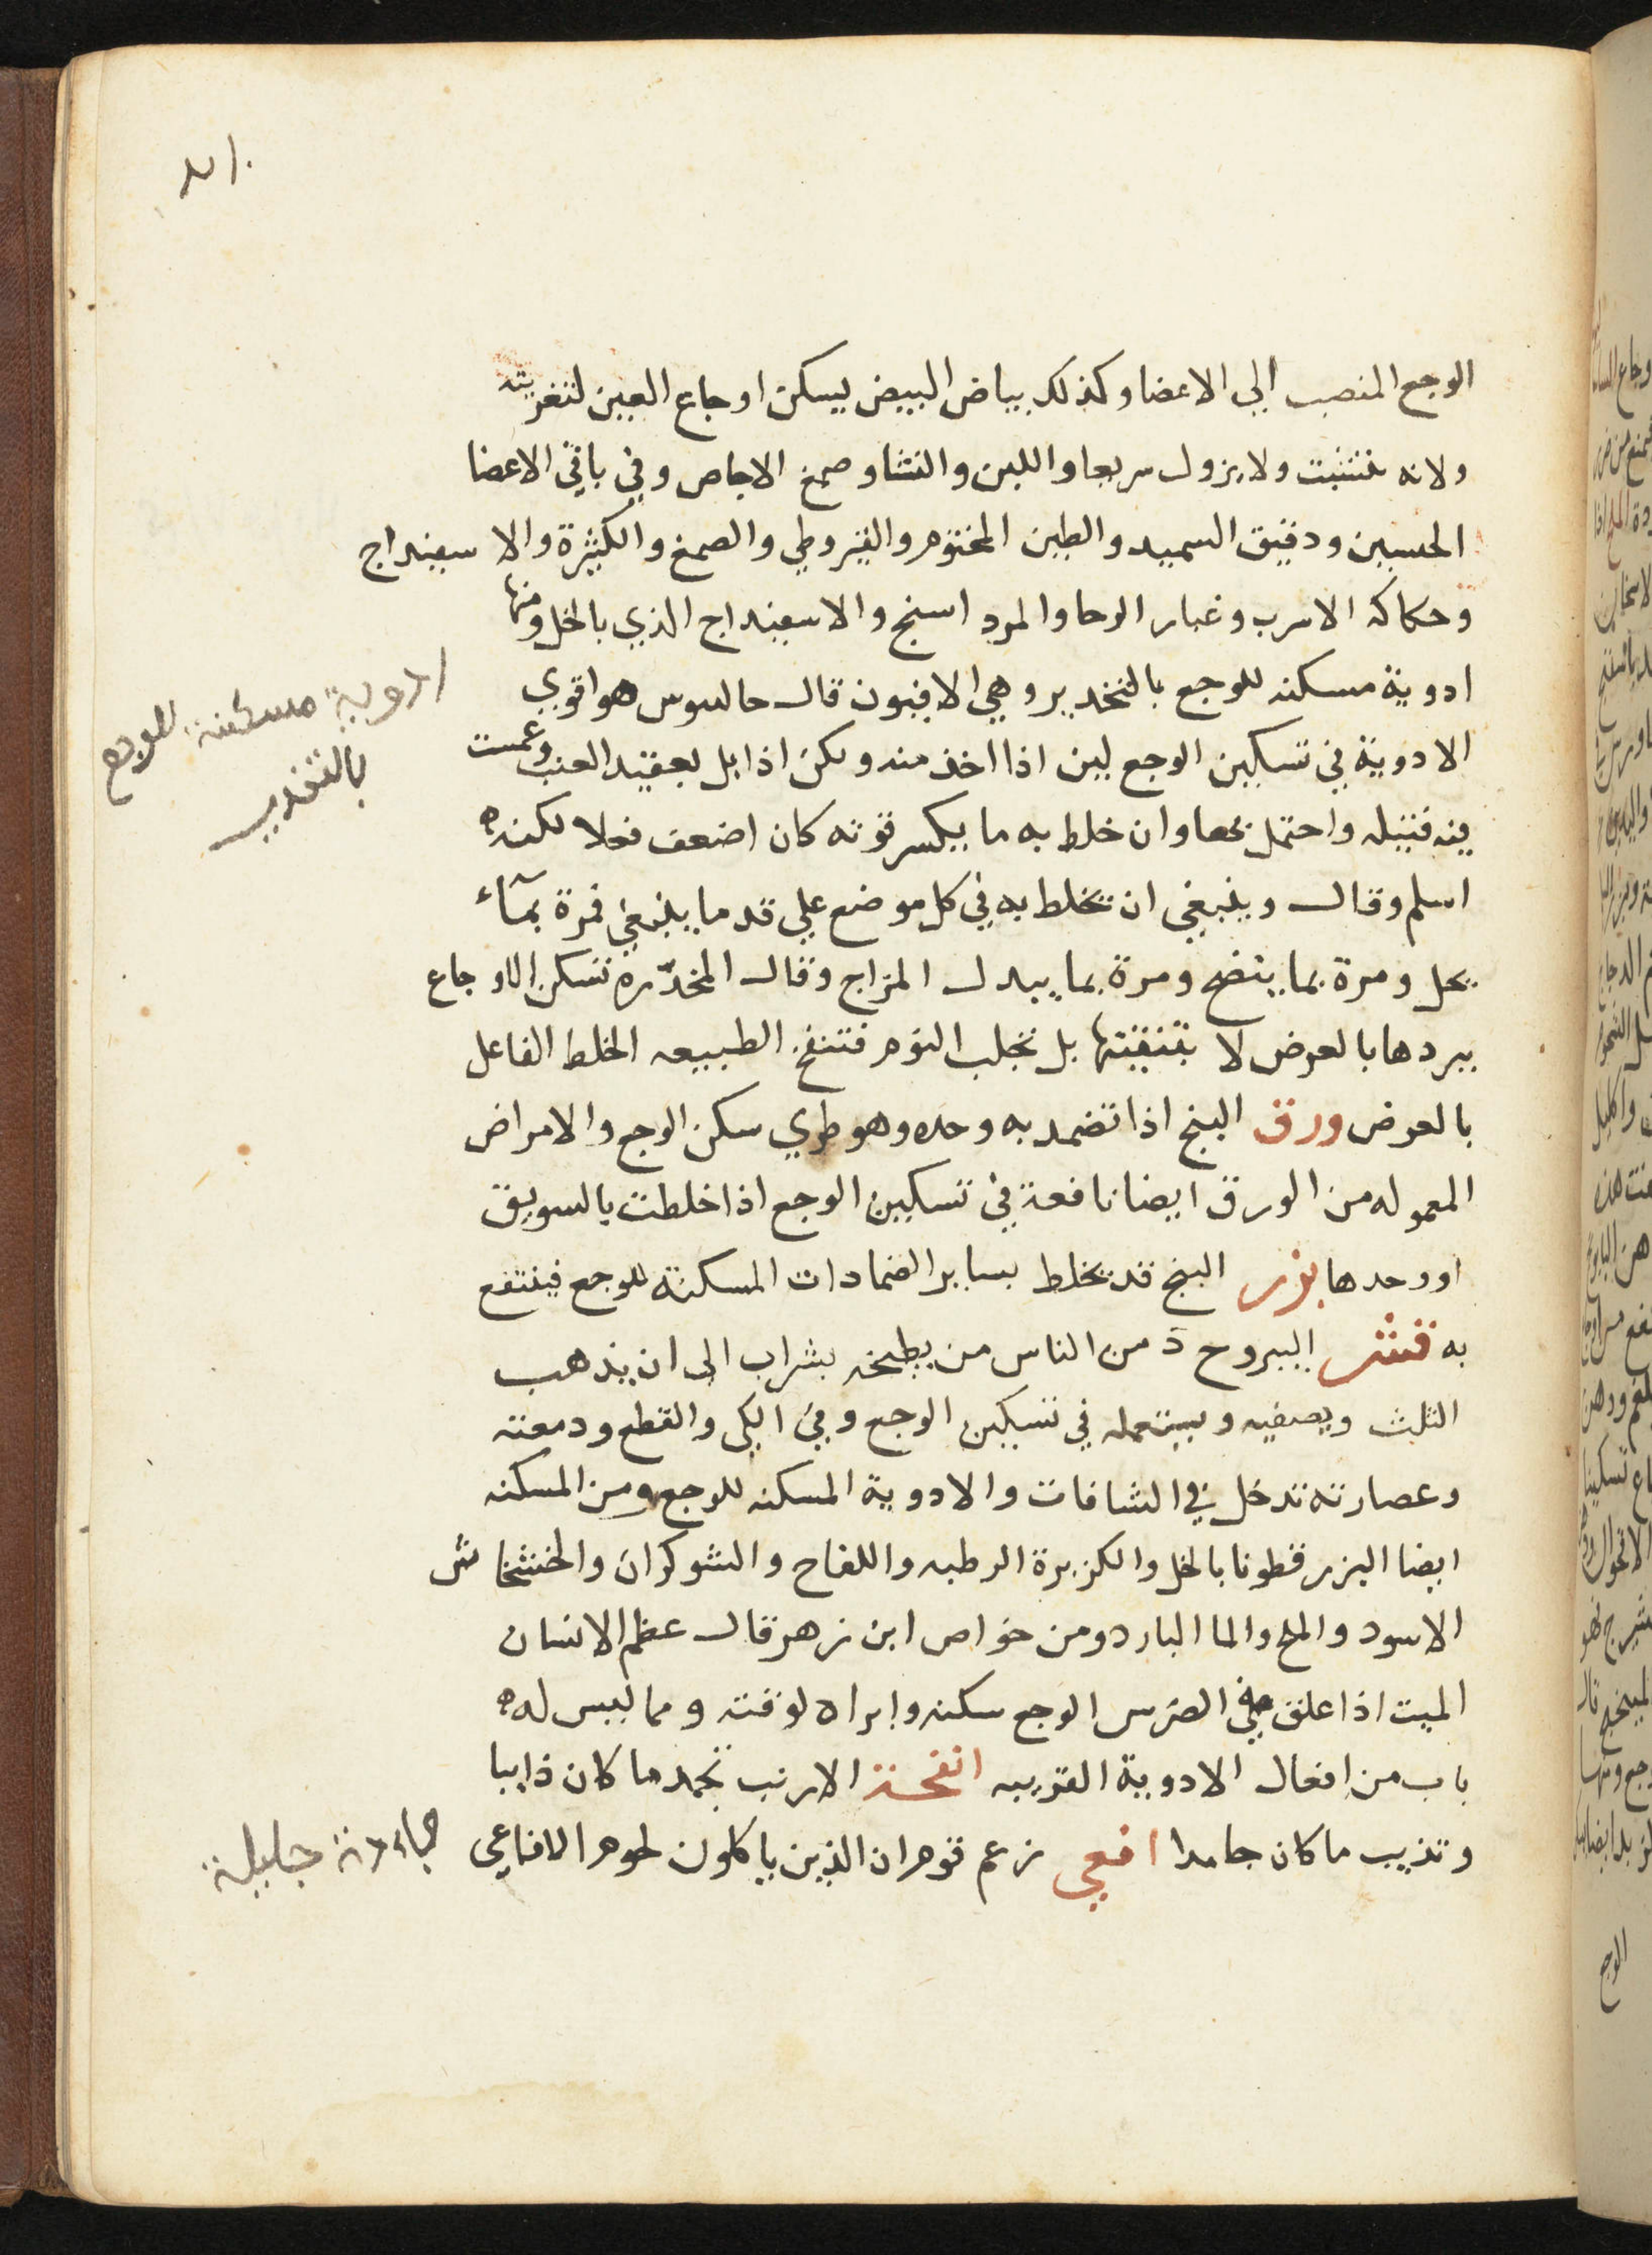 الوجع المنصب الي الاعضا وكذلك بياض البيض يسكن اوجاع العين لتغريته
ولانه يتشبت ولا يزول سريعا واللبن والنشا وصمغ الاجاص وفي باقي الاعضا
الحسبين ودقيق السميد والطين المختوم والقيروطي والصمغ والكثيرة والاسفيداج
وحكاكه الاسرب وغبار الرحا والمرداسنج والاسفيداج الذي بالخل ومنها
ادوية مسكنه للوجع بالتخدير وهي الافيون قال جالينوس هو اقوي
الادوية في تسكين الوجع لين اذا اخذ منه ولكن اذا بل بعقيد العنب وغمست
فيه فتيله واحتمل بحما وان خلط به ما يكسر قوته كان اضعف فعلا لكنه
اسلم وقال وينبغي ان تخلط به في كل موضع علي قدر ما ينبغي فمرة بمآء
يحل ومرة بما ينضج ومرة بما يبدل المزاج وقال المخدّره تسكن الاوجاع
ببردها بالعرض لا بتنقيتها بل تجلب النوم فتنضج الطبيعه الخلط الفاعل
بالعرض ورق البنج اذا تضمد به وحده وهو طري سكن الوجع والامراض
المعموله من الورق ايضا نافعة في تسكين الوجع اذا خلطت بالسويق
او وحدها بزر البنج قد يخلط بساير الضمادات المسكنة للوجع فينتفع
به قشر اليبروح د من الناس من يطبخه بشراب الى ان يذهب
الثلث ويصفيه ويستعمله في تسكين الوجع وفي الكي والقطع ودمعته
وعصارته تدخل في الشافات والادوية المسكنه للوجع ومن المسكنه
ايضا البزر قطونا بالخل والكزبرة الرطبه واللفاح والشوكران والخشخاش
الاسود والملح والما البارد ومن خواص ابن زهر قال عظم الانسان
الميت اذا علق على الضرس الوجع سكنه وابراه لوقته ومما ليس له
باب من افعال الادوية القريبه انفحة الارنب تجمد ما كان ذايبا
وتذيب ما كان جامدا افعي زعم قوم ان الذين ياكلون لحوم الافاعي
ادوية مسكنة للوجع
بالتخدير
جليلة